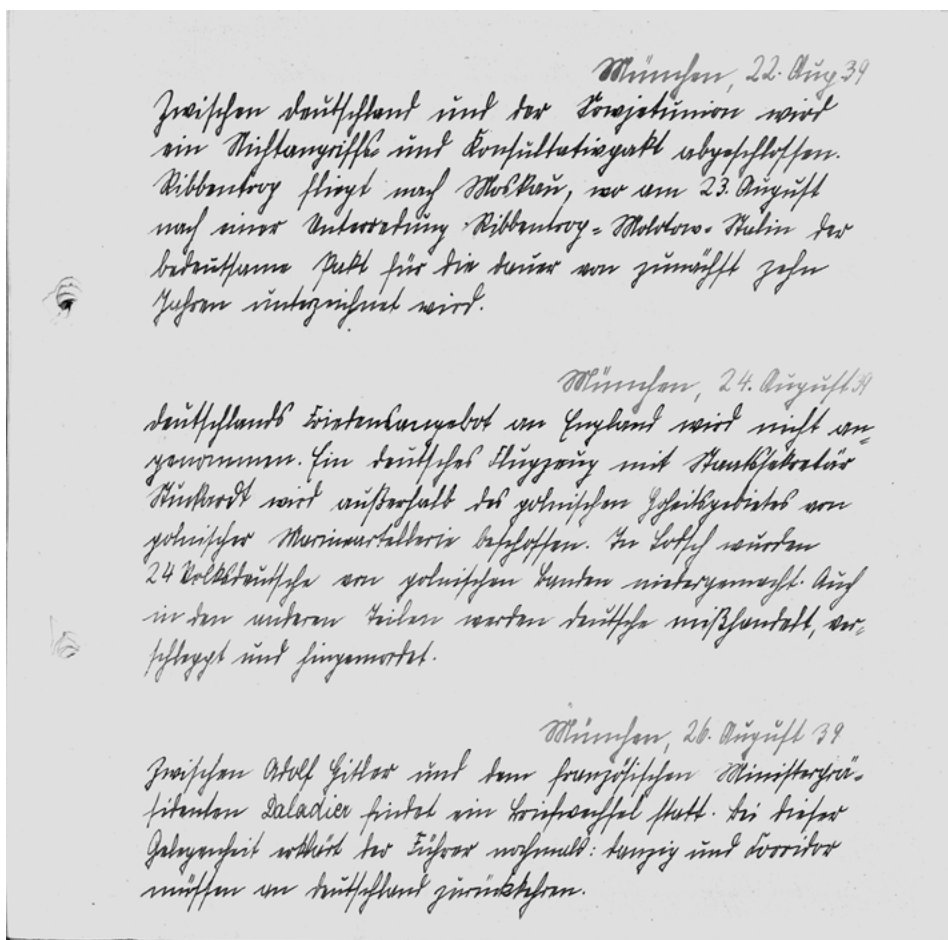 München, 22. Aug 39
Zwischen Deutschland und der Sowjetunion wird
ein Nichtangriffs und Konsultativpakt abgeschlossen.
Ribbentrop fliegt nach Moskau, wo am 23. August
nach einer Unterredung Ribbentrop-Molotow-Stalin der
bedeutsame Pakt für die Dauer von zunächst zehn
Jahren unterzeichnet wird.
München, 24. August 39
Deutschlands Friedensangebot an England wird nicht an-
genommen. Ein deutsches Flugzeug mit Staatssekretär
Stuckardt wird außerhalb des polnischen Hoheitsgebietes von
polnischer Marineartellerie beschossen. In Lodsch wurden
24 Volksdeutsche von polnischen Banden niedergemacht. Auch
in den anderen Teilen werden Deutsche mißhandelt, ver-
schleppt und hingemordet.
München, 26. August 39
Zwischen Adolf Hitler und dem französischen Ministerprä-
sidenten Daladier findet ein Briefwechsel statt. Bei dieser
Gelegenheit erklärt der Führer nochmals: Danzig und Corridor
müssen an Deutschland zurückkehren.